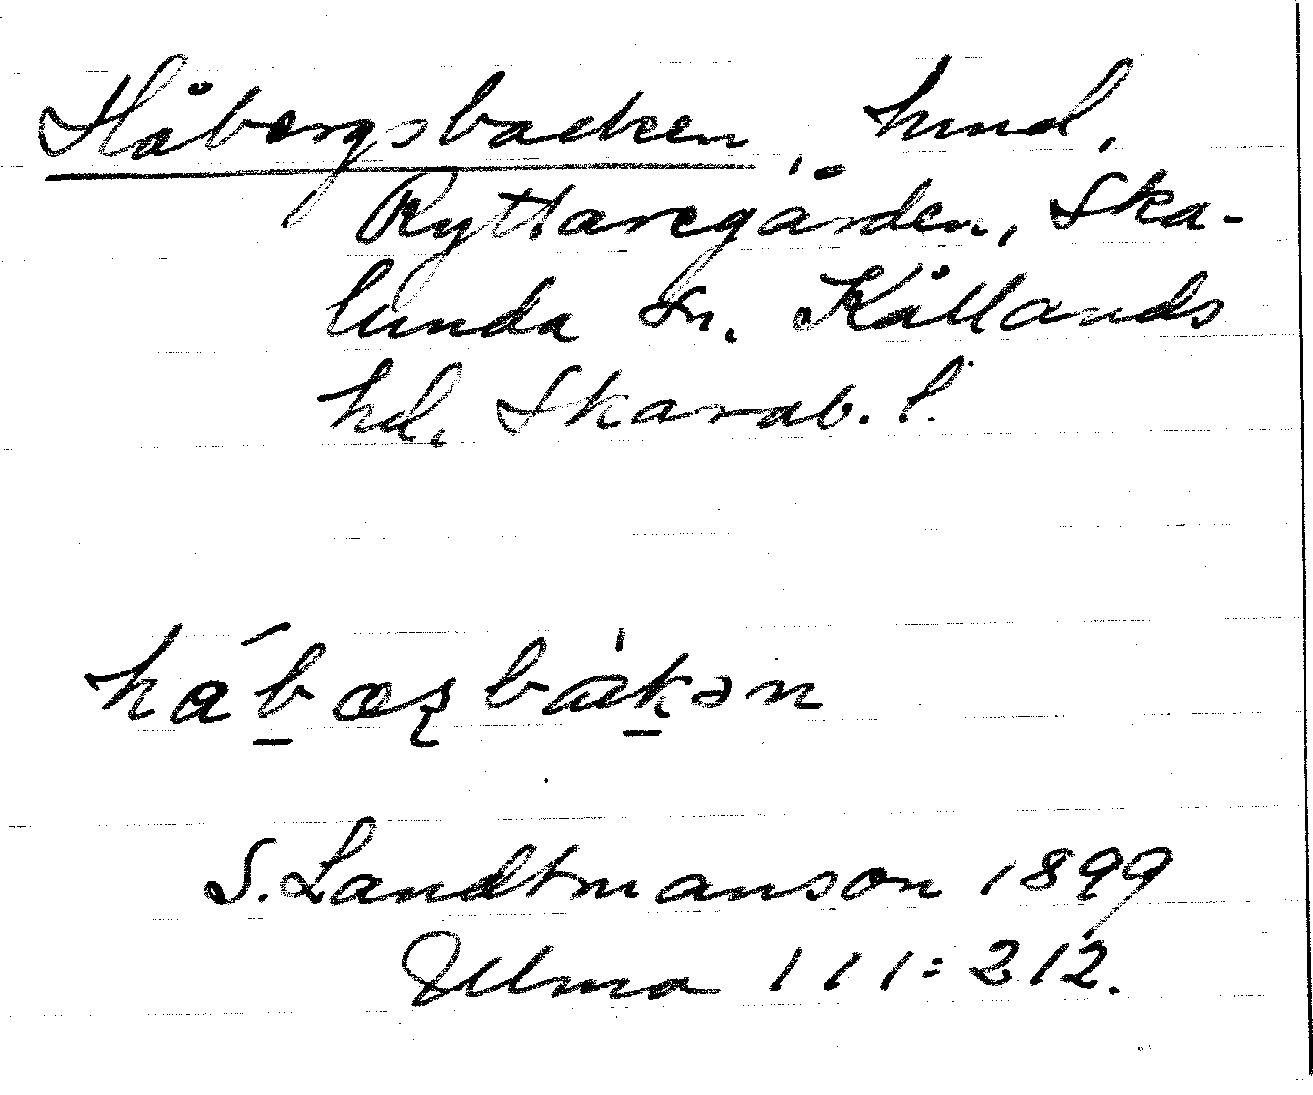 Håbergsbacken, hmd,
Ryttaregården, Ska-
lunda sn. Kållands
hd, Skarab. l.
S. Landtmanson 1899
Ulma 111:212.